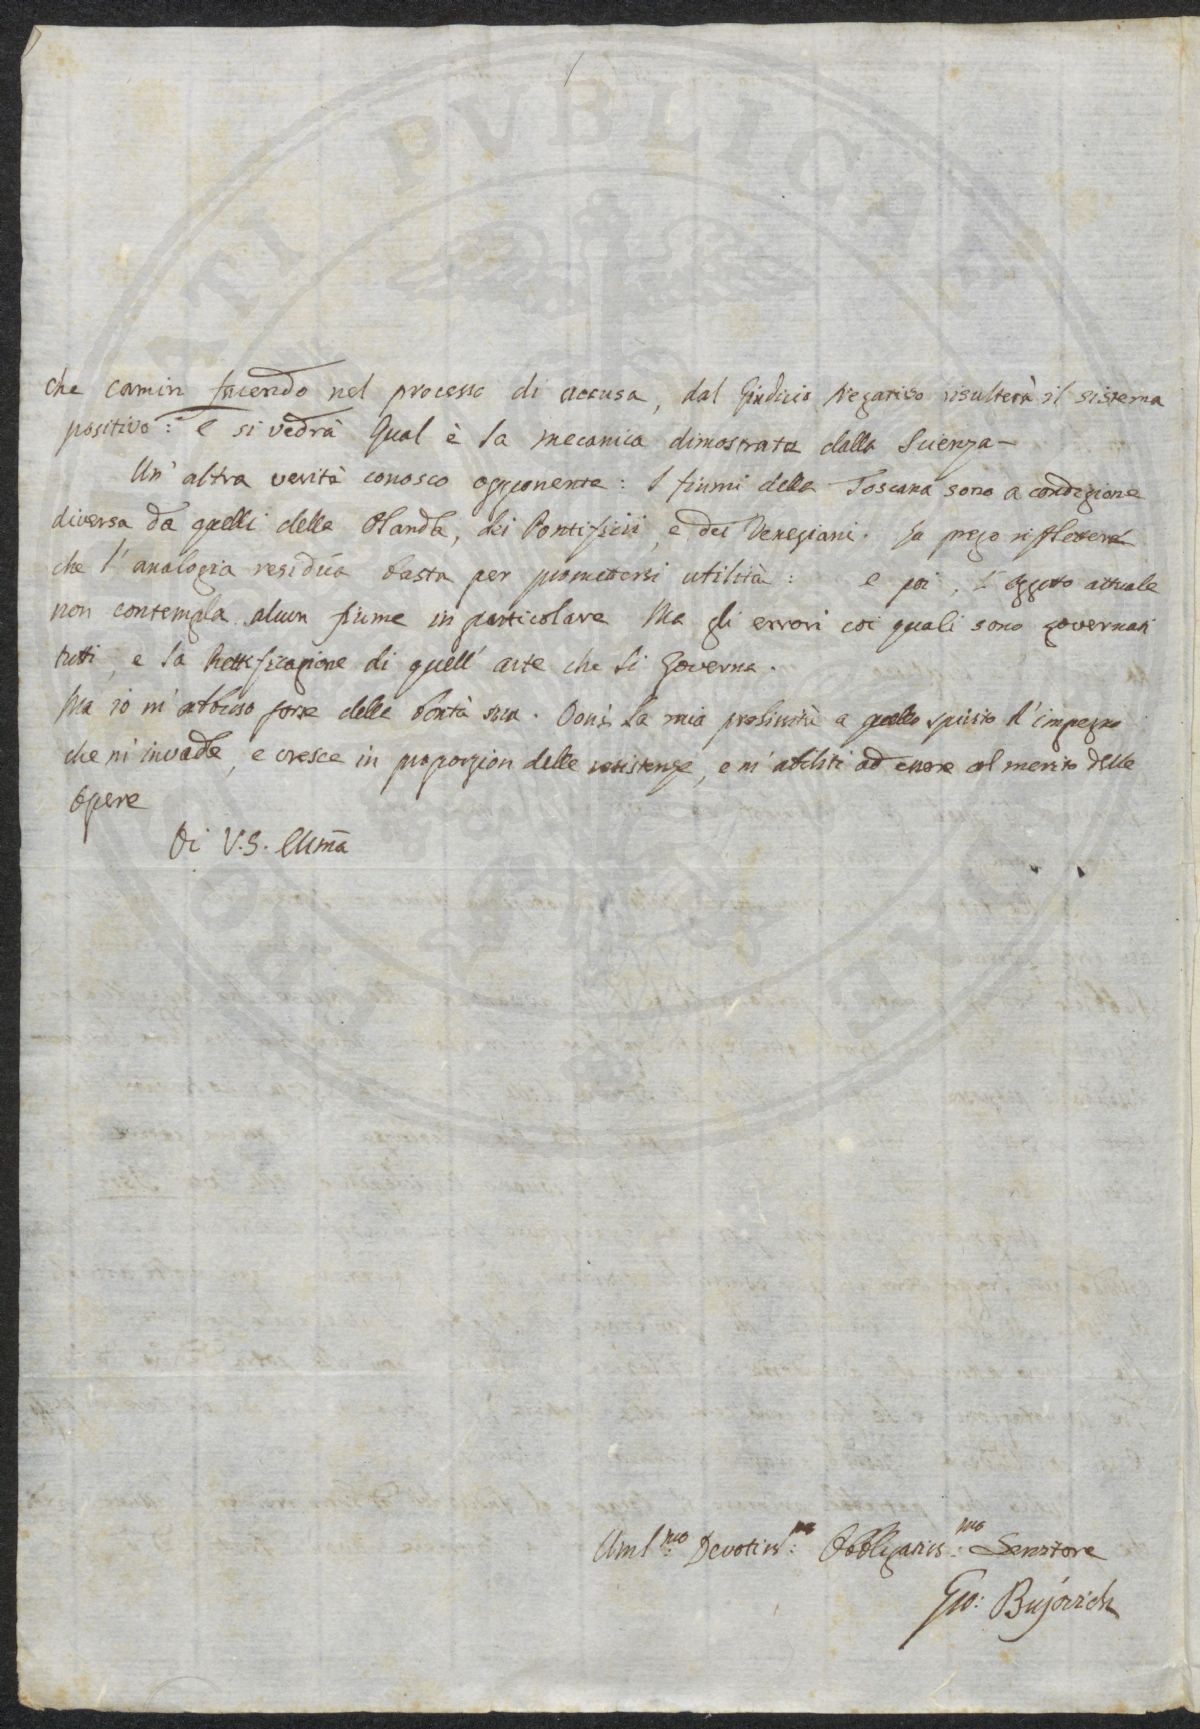 che camin facendo nel processo di accusa, dal Giudicio Negativo risulterà il sistema
positivo: e si vedrà Qual è la mecanica dimostrata dalla Scienza
Un' altra verità conosco opponente: I fiumi della Toscana sono a condizione
diversa da quelli della Olanda, dei Pontificii, e dei Veneziani. La prego riflettere
che l' analogia residua basta per promettersi utilità: e poi, l' oggetto attuale
non contempla alcun fiume in particolare Ma gli errori coi quali sono governati
tutti, e la Rettificazione di quell' arte che li Governa.
Ma io m' abbuso forse della bontà sua. Doni la mia prolissità a quello spirito d' impegno
che m' invade, e cresce in proporzion delle resistenze, e m' abiliti ad essere al merito delle
Opere
Di V.S. Illma
Uml.mo Devotiss:mo Obbligatiss:mo Servitore
Gio: Bujovich
PROSPERITATI PUBLICAE